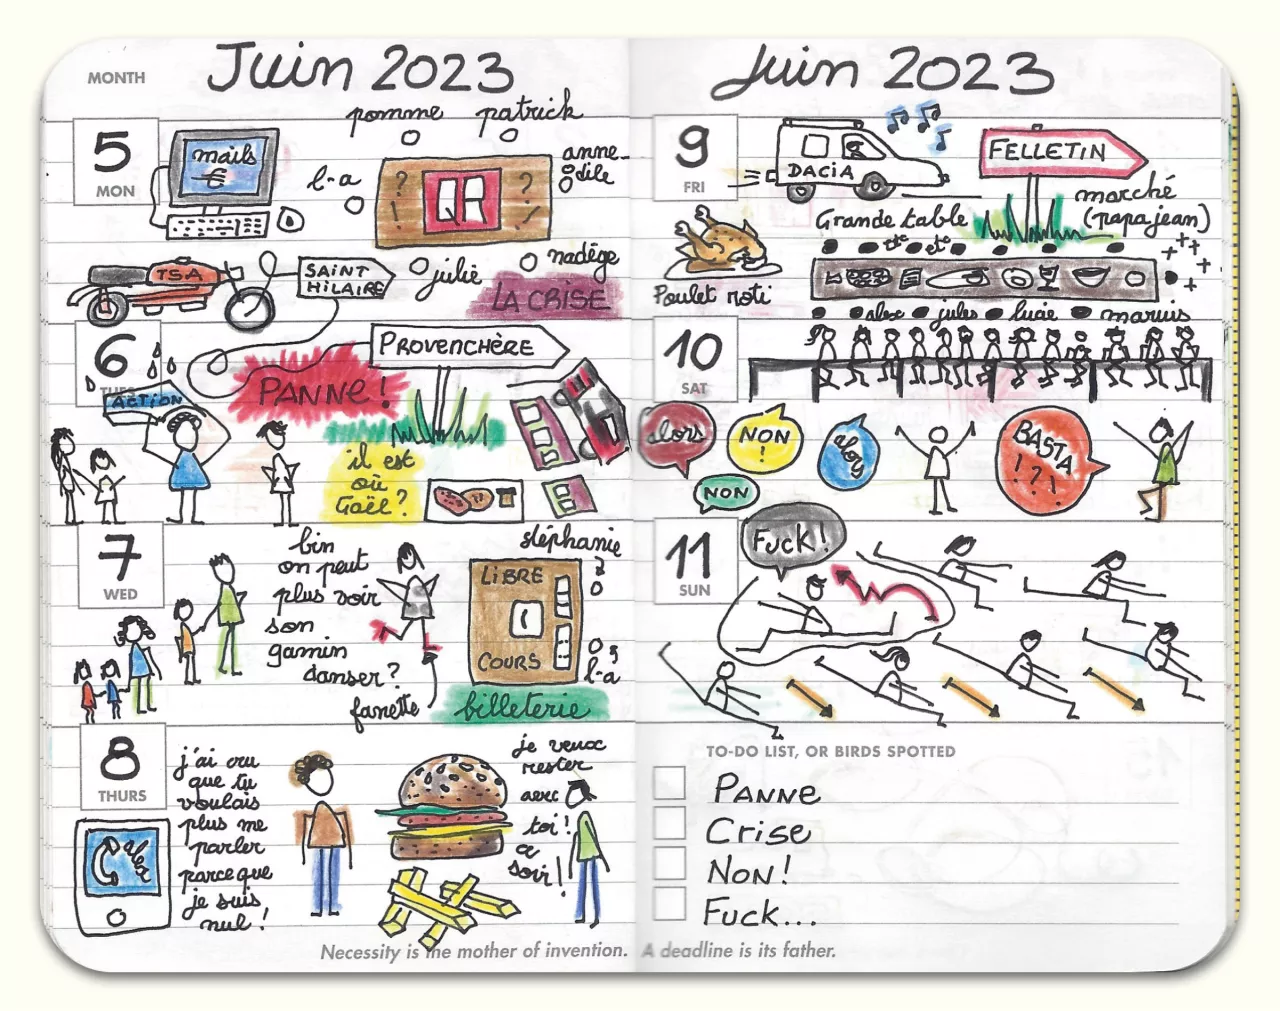 MONTH
Juin 2023
5
MON
mails
€
pomme
patrick
l-a
? QR ?
! !
anne-
odile
TSA
SAINT
HILAIRE
julie
nadège
LA CRISE
6
TUES
ACTION
PANNE !
PROVENCHÈRE
il est
où
Gaël ?
7
WED
bin
on peut
plus voir
son
gamin
danser ?
fanette
stéphanie
LIBRE
1
COURS
l-a
billeterie
8
THURS
j'ai cru
que tu
voulais
plus me
parler
parce que
je suis
nul !
je veux
rester
avec
toi !
ce
soir !
Necessity is the mother of invention.
Juin 2023
9
FRI
DACIA
FELLETIN
marché
(papajean)
Grande table
Poulet roti
etc etc
alex jules lucie marius
10
SAT
alors
NON
!
NON
BASTA
! ? !
11
SUN
Fuck !
TO-DO LIST, OR BIRDS SPOTTED
PANNE
Crise
NON !
Fuck...
A deadline is its father.